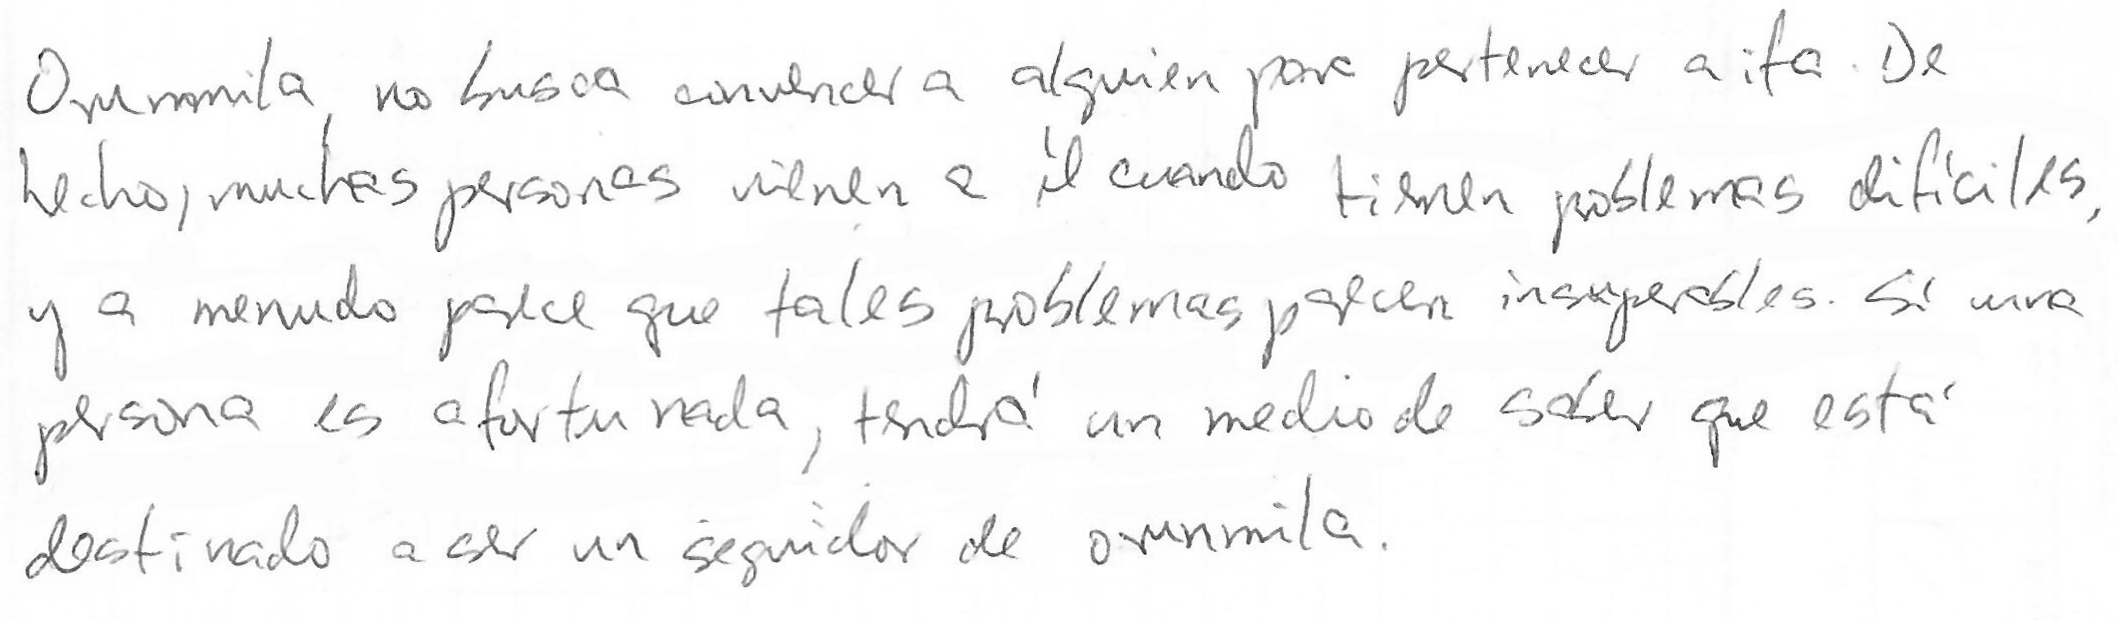 Orunmila, no busca convencer a alguien para pertenecer a ifa. De
hecho, muchas personas vienen a él cuando tienen problemas difíciles,
y a menudo parece que tales problemas parecen insuperables. Si una
persona es afortunada, tendrá un medio de saber que está
destinado a ser un seguidor de orunmila.